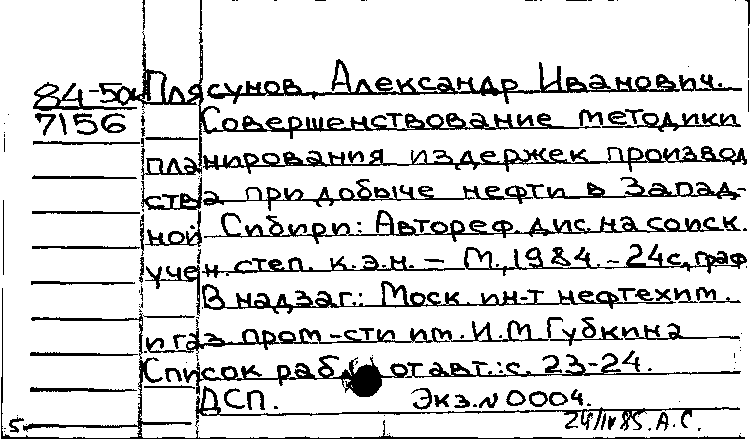 84-50к Плясунов, Александр Иванович.
7156 Совершенствование методики
планирования издержек производ
ства при добыче нефти в Запад-
ной Сибири: Автореф. дис. на соиск.
учен. степ. к.э.н. – М., 1984. – 24с., граф
В надзаг.: Моск. ин-т нефтехим.
и газ. пром-сти им. И.М. Губкина
Список раб. от авт.: с. 23-24.
ДСП. Экз. N 0004.
5. 24/IV 85. А.С.